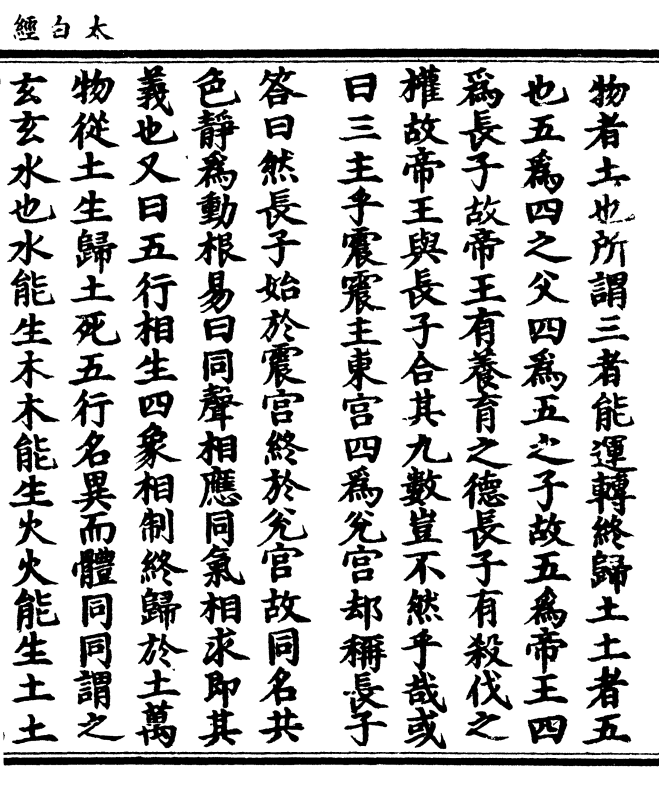 太白經
物者土也所謂三者能運轉終歸土土者五
也五爲四之父四爲五之子故五爲帝王四
爲長子故帝王有養育之德長子有殺伐之
權故帝王與長子合其九數豈不然乎哉或
曰三主乎震震主東宫四爲兊宫却稱長子
答曰然長子始於震宫終於兊宫故同名共
色靜爲動根易曰同聲相應同氣相求即其
義也又曰五行相生四象相制終歸於土萬
物從土生歸土死五行名異而體同同謂之
玄玄水也水能生木木能生火火能生土土